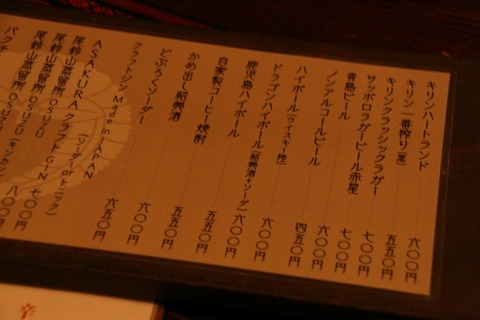 キリンハートランド 六〇〇円
キリン一番搾り(黒) 五五〇円
キリンクラッシックラガー 七〇〇円
サッポロラガービール赤星 七〇〇円
青島ビール 六〇〇円
ノンアルコールビール 四五〇円
ハイボール(ウイスキー陸) 六〇〇円
ドラゴンハイボール(紹興酒+ソーダ) 六〇〇円
鹿児島ハイボール 六〇〇円
自家製コーヒー焼酎 五五〇円
かめ出し紹興酒 五五〇円
どぶろくソーダー 六〇〇円
クラフトジン Made in JAPAN
ASAKURA クラフト(ソーダorトニック) 六五〇円
尾鈴山蒸留所 OSUZU GIN 七〇〇円
尾鈴山蒸留所 OSUZU
尾鈴山蒸留所 OSUZU 八〇〇円